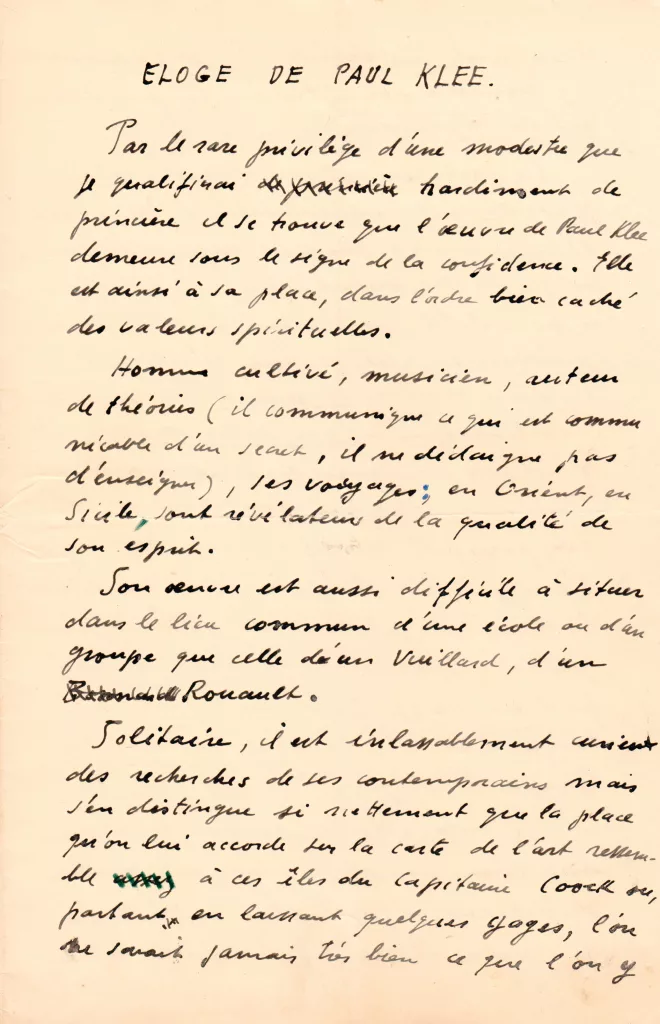 ELOGE DE PAUL KLEE.
Par le rare privilège d'une modestie que
je qualifierai hardiment de
princière il se trouve que l'œuvre de Paul Klee
demeure sous le signe de la confidence. Elle
est ainsi à sa place, dans l'ordre bien caché
des valeurs spirituelles.
Homme cultivé, musicien, auteur
de théories (il communique ce qui est commu
nicable d'un secret, il ne dédaigne pas
d'enseigner), ses voyages, en Orient, en
Sicile, sont révélateurs de la qualité de
son esprit.
Son œuvre est aussi difficile à situer
dans le lieu commun d'une école ou d'un
groupe que celle d'un Vuillard, d'un
Rouault.
Solitaire, il est inlassablement curieux
des recherches de ses contemporains mais
s'en distingue si nettement que la place
qu'on lui accorde sur la carte de l'art ressem-
ble à ces îles du Capitaine Coock où,
partant, en laissant quelques gages, l'on
ne savait jamais très bien ce que l'on y